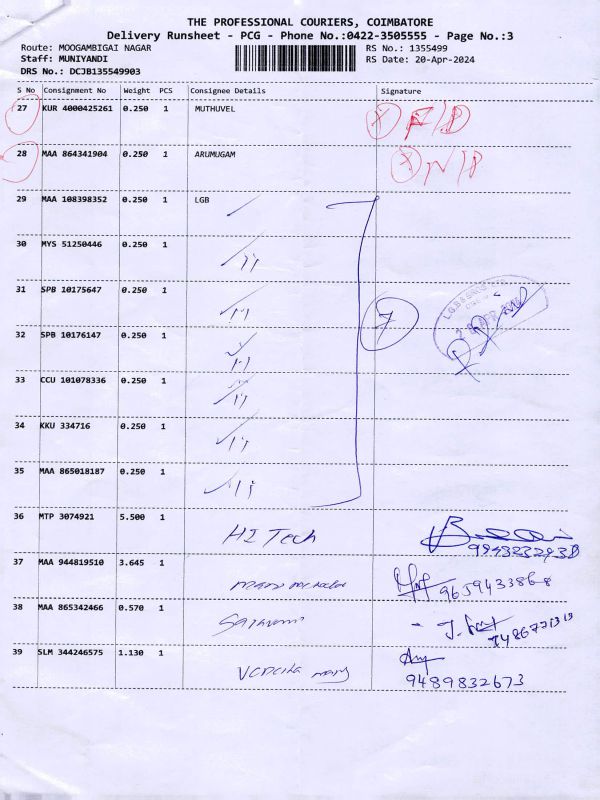 THE PROFESSIONAL COURIERS, COIMBATORE
Delivery Runsheet - PCG - Phone No.:0422-3505555 - Page No.:3
Route: MOOGAMBIGAI NAGAR RS No.: 1355499
Staff: MUNIYANDI RS Date: 20-Apr-2024
DRS No.: DCJB135549903
S No Consignment No Weight PCS Consignee Details Signature
27 KUR 4000425261 0.250 1 MUTHUVEL
28 MAA 864341904 0.250 1 ARUMUGAM
29 MAA 108398352 0.250 1 LGB
30 MYS 51250446 0.250 1
31 SPB 10175647 0.250 1
32 SPB 10176147 0.250 1
33 CCU 101078336 0.250 1
34 KKU 334716 0.250 1
35 MAA 865018187 0.250 1
7
36 MTP 3074921 5.500 1 HI Tech
37 MAA 944819510 3.645 1
38 MAA 865342466 0.570 1
39 SLM 344246575 1.130 1
9489832673